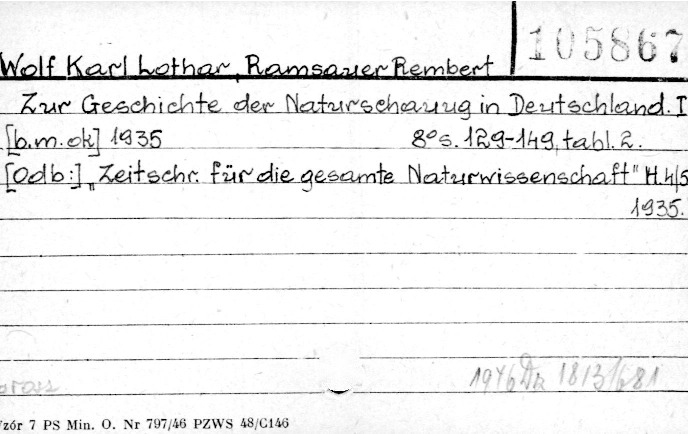 105867
Wolf Karl Lothar, Ramsauer Rembert
Zur Geschichte der Naturschauug in Deutschland. I
[b.m.ok] 1935 8° s. 129-149, tabl. 2.
[Odb:] "Zeitschr. für die gesamte Naturwissenschaft" H.4/5
1935.
1946 Dn 1813/681
zór 7 PS Min. O. Nr 797/46 PZWS 48/C146